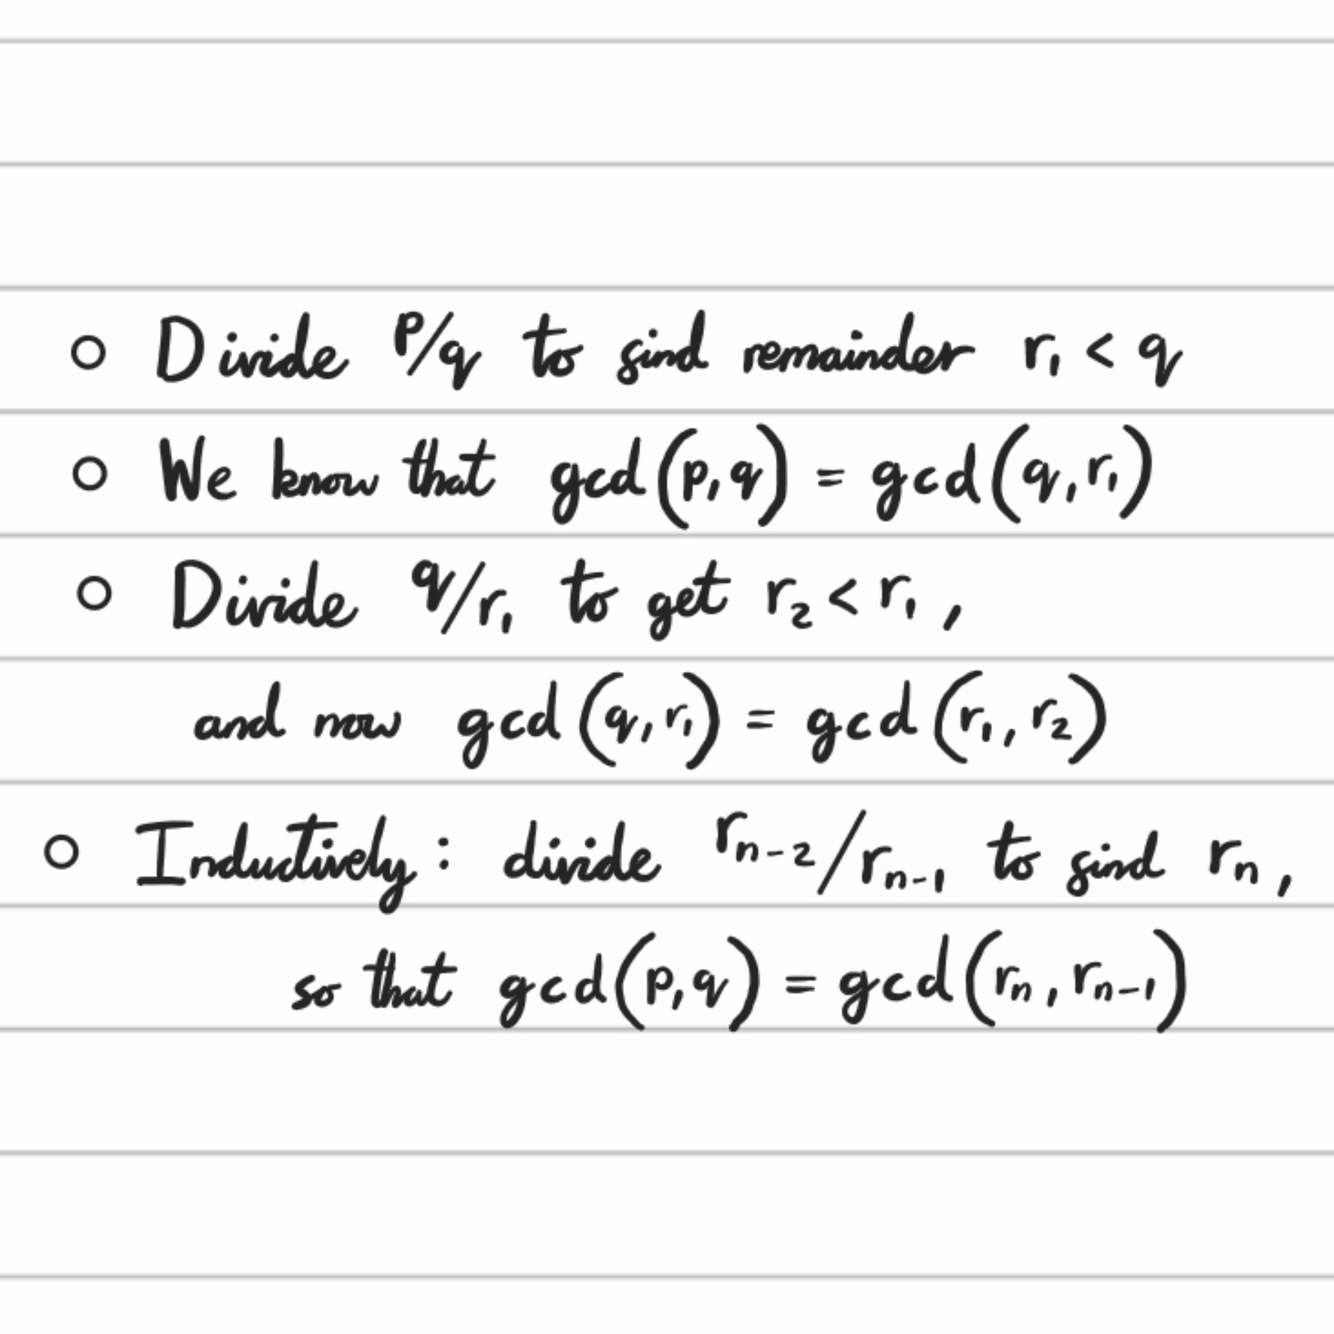 ○ Divide p/q to find remainder r₁ < q
○ We know that gcd(p,q) = gcd(q,r₁)
○ Divide q/r₁ to get r₂ < r₁,
and now gcd(q,r₁) = gcd(r₁,r₂)
○ Inductively: divide rₙ₋₂/rₙ₋₁ to find rₙ,
so that gcd(p,q) = gcd(rₙ,rₙ₋₁)